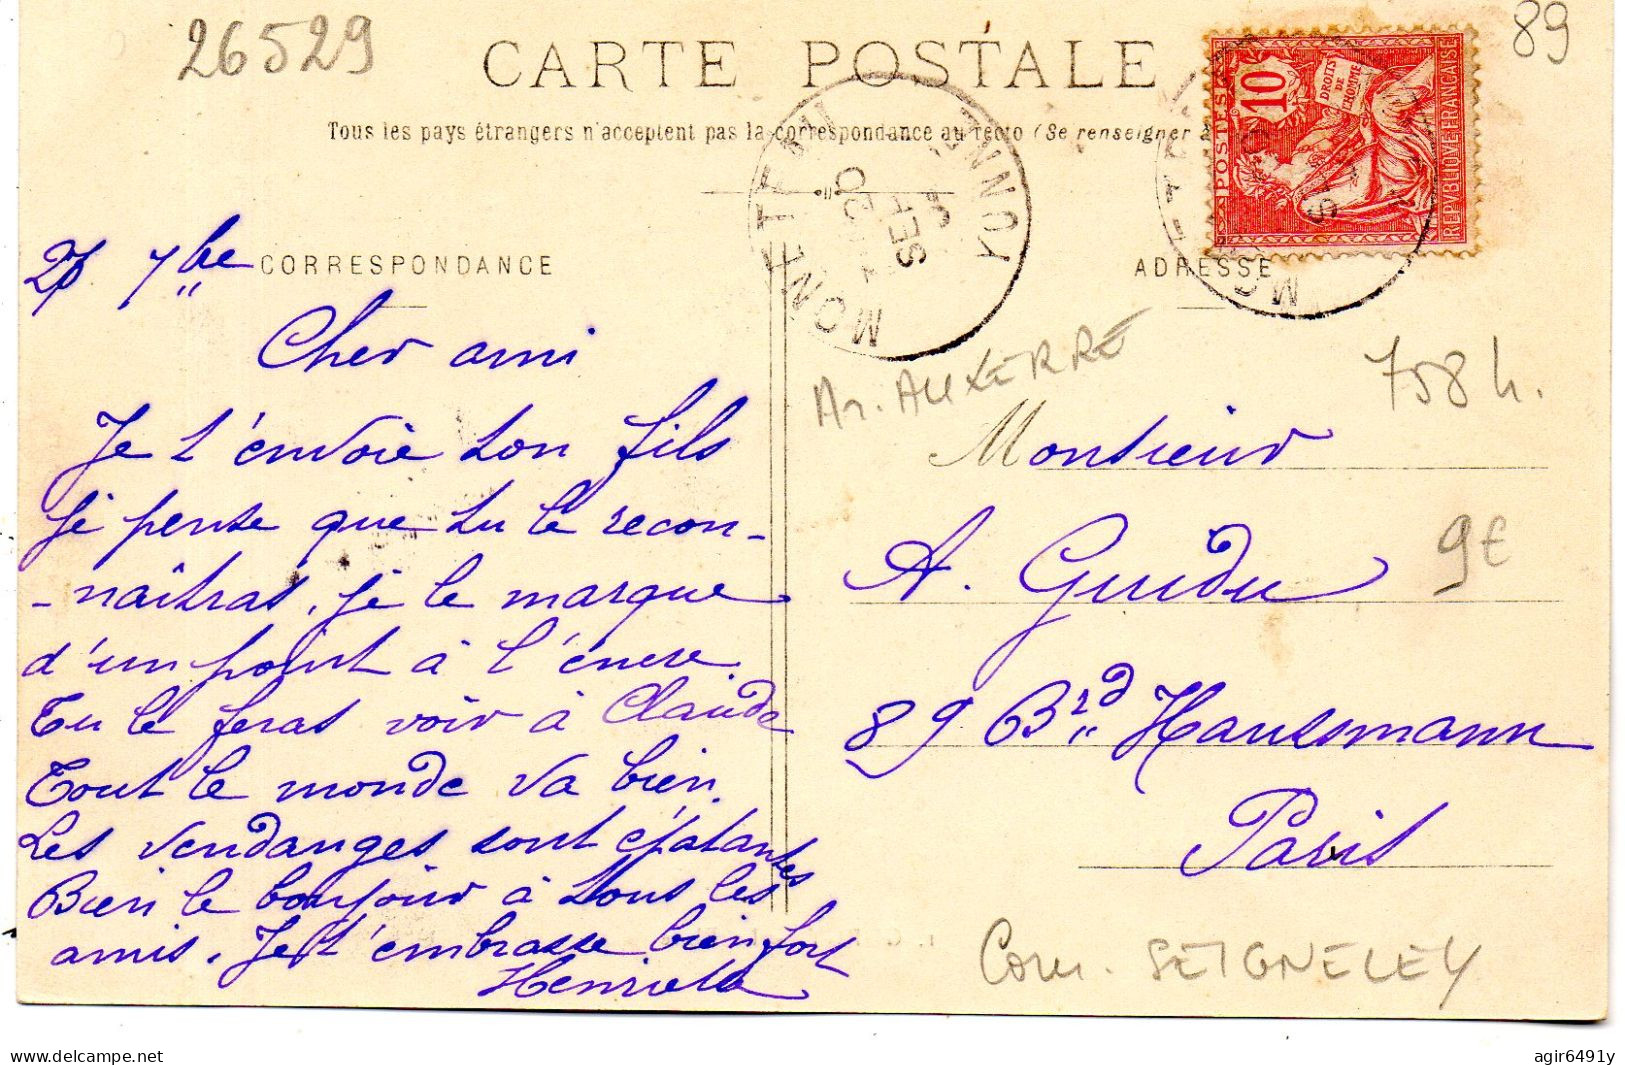 26529
89
CARTE POSTALE
Tous les pays étrangers n'acceptent pas la correspondance au recto (Se renseigner à
POSTES
10
DROITS DE L'HOMME
REPVBLIQVE FRANÇAISE
YONNE
SEPT
CORRESPONDANCE
ADRESSE
27 7bre
Cher ami
Je t'envoie ton fils
je pense que tu le recon-
-naîtras. je le marque
d'un point à l'encre.
Tu le feras voir à Claude
Tout le monde va bien.
Les vendanges sont épatantes
Bien le bonjour à tous les
amis. Je t'embrasse bien fort
Henriette
Ar. AUXERRE
758 h.
Monsieur
A. Guidu
9€
89 Brd Haussmann
Paris
Com. SEIGNELEY
www.delcampe.net
agir6491y